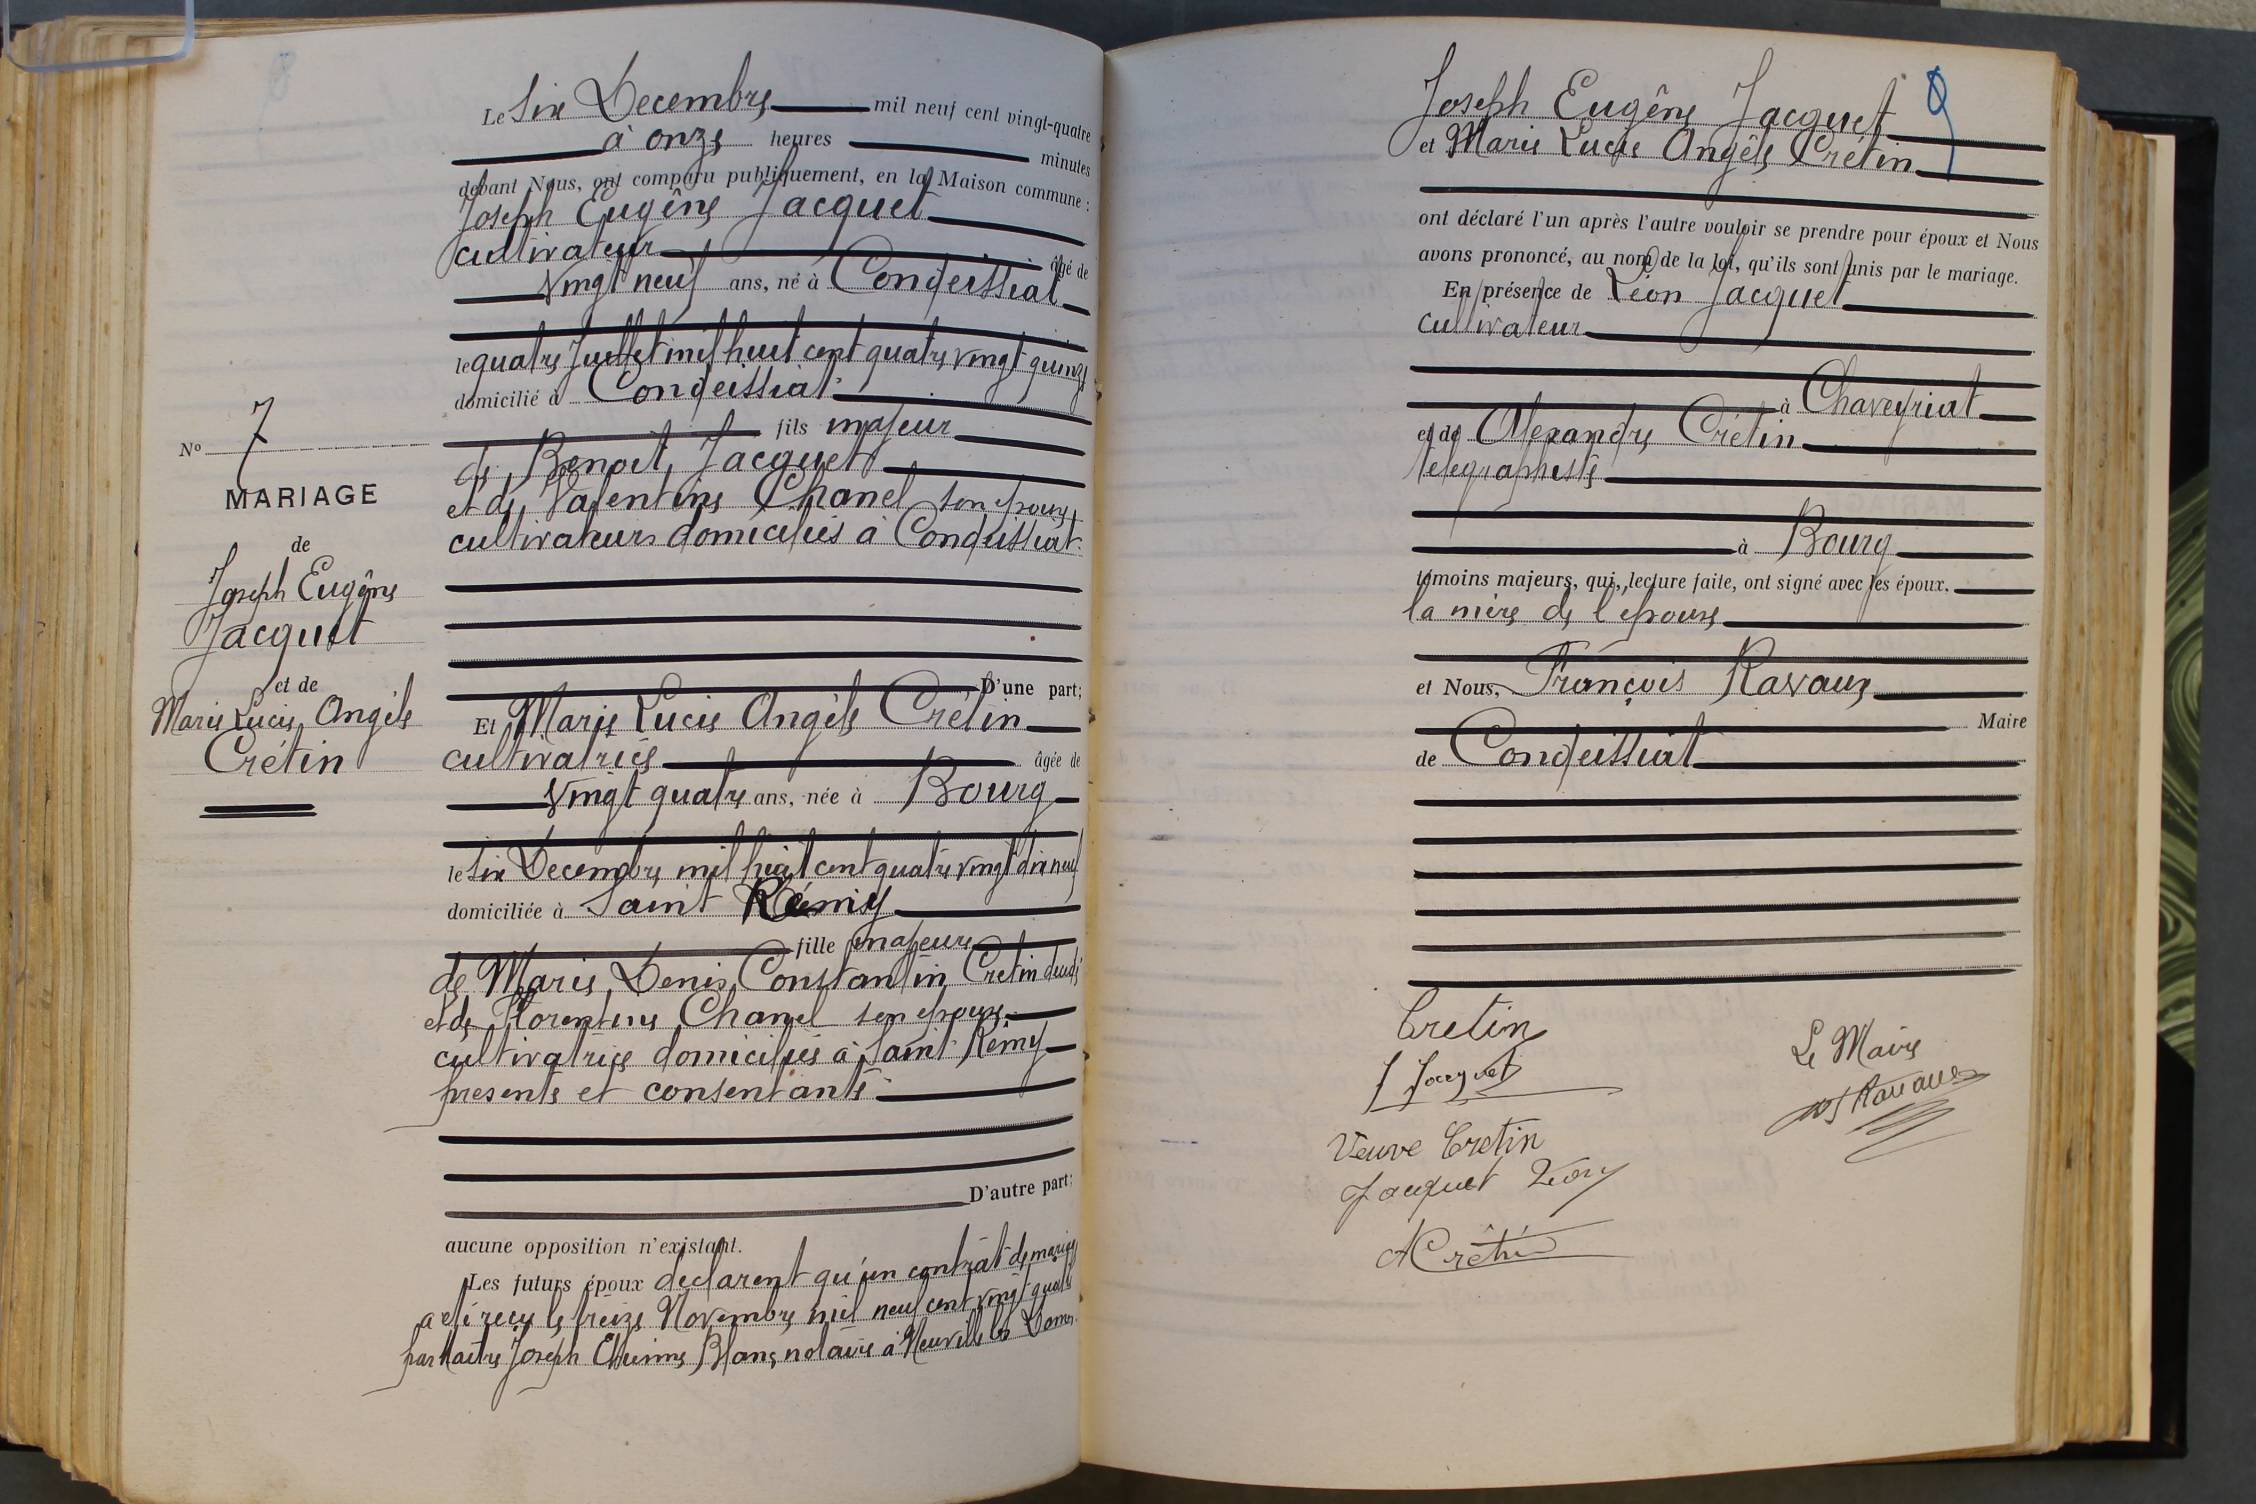 Le Six Decembre mil neuf cent vingt-quatre
à onze heures minutes
devant Nous, ont comparu publiquement, en la Maison commune :
Joseph Eugêne Jacquet
cultivateur âgé de
vingt neuf ans, né à Condeissiat
le quatre Juillet mil huit cent quatre vingt quinze
domicilié à Condeissiat
fils majeur
de Benoit Jacquet
et de Valentine Chanel son epouse
cultivateurs domiciliés à Condeissiat.
D'une part;
Et Marie Lucie Angèle Crétin
cultivatrice âgée de
vingt quatre ans, née à Bourg
le Six Decembre mil huit cent quatre vingt dix neuf
domiciliée à Saint Rémy
fille majeure
de Marie Denis Constantin Cretin
et de Florentine Chanel son epouse
cultivatrice domiciliés à Saint Rémy
presents et consentants
D'autre part;
aucune opposition n'existant.
Les futurs époux declarent qu'un contrat de mariage
a été reçu le treize Novembre mil neuf cent vingt quatre
par Maitre Joseph Etienne Blanc, notaire à Neuville les Dames
No 7
MARIAGE
de
Joseph Eugêne
Jacquet
et de
Marie Lucie Angèle
Crétin
8
Joseph Eugêne Jacquet
et Marie Lucie Angèle Crétin
ont déclaré l'un après l'autre vouloir se prendre pour époux et Nous
avons prononcé, au nom de la loi, qu'ils sont unis par le mariage.
En présence de Léon Jacquet
cultivateur
à Chaveyriat
et de Alexandre Crétin
telegraphiste
à Bourg
témoins majeurs, qui, lecture faite, ont signé avec les époux.
la mère de l'epouse
et Nous, François Ravaux
Maire
de Condeissiat
Cretin
J Jacquet
Veuve Cretin
Jacquet Léon
A Crétin
Le Maire
Ravaux